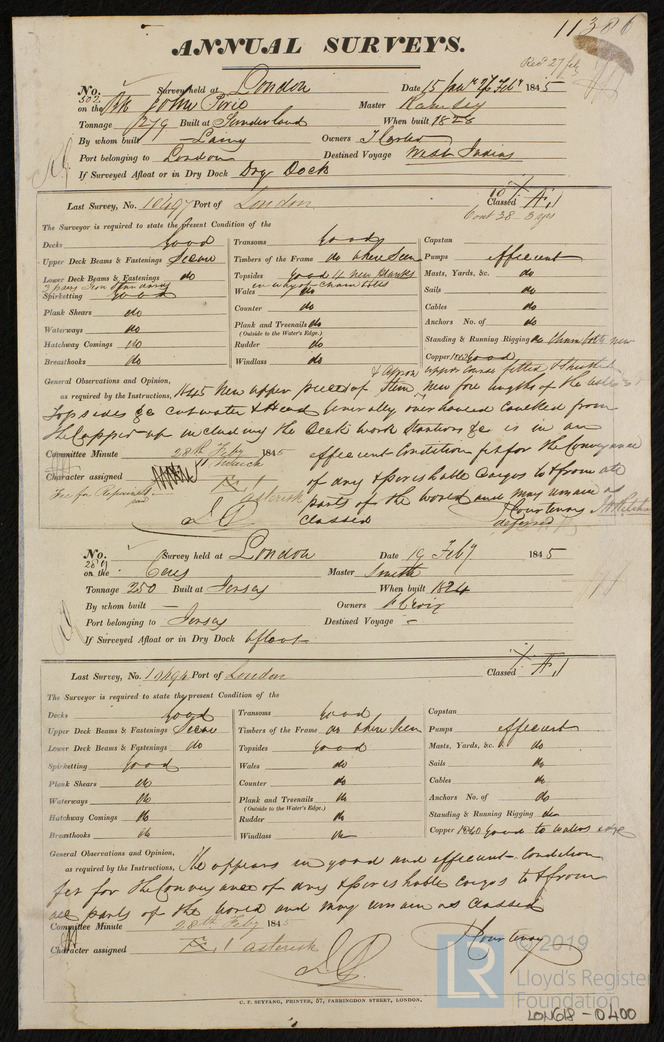 11386
ANNUAL SURVEYS.
Recd 27 Feb
No. 502 Survey held at London Date 15 Jany 27 Feby 1845
on the Bk John Master Ramsey
Tonnage 279 Built at Sunderland When built 1828
By whom built Laing Owners
Port belonging to London Destined Voyage West Indies
If Surveyed Afloat or in Dry Dock Dry Dock
Last Survey, No. 10497 Port of London Classed A.1
Cont 38 - 3 yrs
The Surveyor is required to state the present Condition of the
Decks good Transoms good Capstan
Upper Deck Beams & Fastenings Secure Timbers of the Frame do where seen Pumps efficient
Lower Deck Beams & Fastenings do Topsides good 4 new planks Masts, Yards, &c. do
3 pairs Iron Standards in way of chain bolts
Spirketting good Wales do Sails do
Plank Shears do Counter do Cables do
Waterways do Plank and Treenails do Anchors No. of do
(Outside to the Water's Edge.)
Hatchway Comings do Rudder do Standing & Running Rigging do Chain bolts new
Breasthooks do Windlass do Copper good
General Observations and Opinion, & Apron upper ones fitted
as required by the Instructions, new upper piece of Stem, new fore lengths of the
Topsides &c cutwater & Head generally overhauled caulked from
the Copper up including the Deck work Stantions &c is in an
Committee Minute 28th Feby 1845 efficient Condition fit for the Conveyance
March
Character assigned of dry & perishable Cargos to & from all
A.1 asterisk parts of the world and may remain as
Fee for Repairs
classed Courtenay
deferred
No. Survey held at London Date 19 Feby 1845
on the Ceres Master Smith
Tonnage 250 Built at Jersey When built 1824
By whom built — Owners
Port belonging to Jersey Destined Voyage —
If Surveyed Afloat or in Dry Dock afloat
Last Survey, No. Port of London Classed A.1
The Surveyor is required to state the present Condition of the
Decks good Transoms good Capstan
Upper Deck Beams & Fastenings Secure Timbers of the Frame do where seen Pumps efficient
Lower Deck Beams & Fastenings do Topsides good Masts, Yards, &c. do
Spirketting good Wales do Sails do
Plank Shears do Counter do Cables do
Waterways do Plank and Treenails do Anchors No. of do
(Outside to the Water's Edge.)
Hatchway Comings do Rudder do Standing & Running Rigging do
Breasthooks do Windlass do Copper 1840 good to waters edge
General Observations and Opinion,
as required by the Instructions, She appears in good and efficient Condition
fit for the Conveyance of dry & perishable Cargos to & from
all parts of the world and may remain as classed
Committee Minute 28th Feby 1845
Character assigned A.1 asterisk Courtenay
© 2019
LR Lloyd's Register
Foundation
C. F. SEYFANG, PRINTER, 57, FARRINGDON STREET, LONDON.
LON618-0400